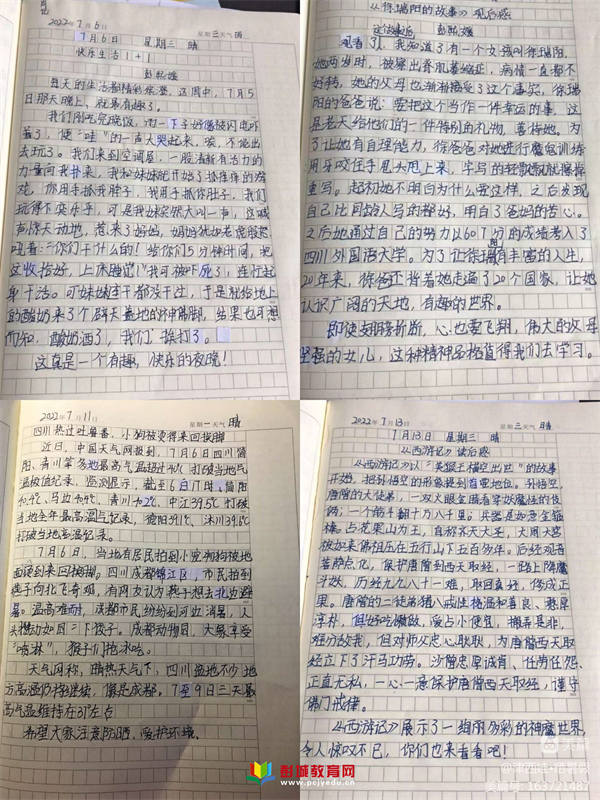 2022年7月6日 星期三 天气 晴
7月6日 星期三 晴
快乐生活1+1
每天的生活都精彩纷呈,这周中,7月5
日那天晚上,就易有趣了。
我们刚吃完晚饭,
着了,便“哇”的一声大哭起来,唉,不能出
去玩了。我们来到空调屋,一股清鲜有活力的
力量向我扑来,我和妹妹就开始了抓痒痒的游
戏,你用手抓我脖子,我用手抓你肚子,我们
玩得不亦乐乎,可是我妹突然大叫一声,这喊
声惊天动地,惹来了妈妈,妈妈
吼着:“你们干什么的!给你们5分钟时间,把
这收拾好,上床睡觉!”我可被吓死了,连忙起
身干活。可妹妹啥都没干过,于是就给地上
的酸奶来了个
而知,酸奶洒了,我们挨打了。
这真是一个有趣,快乐的夜晚!
《徐瑞阳的故事》观后感
观看了,我知道了有一个女孩叫徐瑞阳,
她两岁时,被察出脊肌萎缩症,病情一直都不
好转,她的父母也渐渐接受了这个事实,徐瑞
阳的爸爸说:要把这个当作一件幸运的事,这
是老天给他们的一件特别的礼物,善待她。为
了让她有自理能力,徐爸爸对她进行魔鬼训练
用牙咬住手甩头甩上来,字写的轻飘飘就擦掉
重写。起初她不明白为什么要这样,之后发现
自己比同龄人写的都好,明白了爸妈的苦心。
之后她通过自己的努力以601分的成绩考入了
四川外国语大学。为了让徐瑞阳有丰富的人生,
20年来,徐爸正背着她走遍了20个国家,让她
认识广阔的天地,有趣的世界。
即使翅膀折断,心也要飞翔,伟大的父母
坚强的女儿,这种精神品格值得我们去学习。
2022年7月11日 星期一 天气 晴
四川热过吐鲁番,小狗被烫得来回换脚
近日,中国天气网报到,7月6日四川简
阳、青川等多地最高气温超过40℃ 打破当地气
温极值纪录,监测显示,截至6日17时,简阳
40.4℃、马边40.9℃、青川40.2℃、中江39.5℃打破
当地全年最高温气记录,德阳39.1℃、沐川39.6℃
打破当地高温记录。
7月6日,当地有居民拍到小宠物狗被地
面烫到来回换脚。四川成都锦江区,市民拍到
燕子向北飞奇观,有网友认为燕子想去北边避
暑。温高难耐,成都市民纷纷到河边消暑,人
头攒动如同“下饺子。成都动物园,大象享受
“喷淋”,猴子们抱冰吃。
天气网称,晴热天气下,四川盆地不少地
方高温仍将继续,像是成都,7至9日三天最
高气温维持在37℃左右
希望大家注意防晒,爱护环境。
2022年7月13日 星期三 天气 晴
7月13日 星期三 晴
《西游记》读后感
《西游记》以“美猴王横空出世”的故事
开始,把孙悟空的形象提到首要地位。孙悟空,
唐僧的大徒弟,一双火眼金睛看穿妖魔性的伎
俩;一个筋斗翻十万八千里;兵器是如意金箍
棒。占花果山为王,直称齐天大圣,大闹天宫
被如来佛祖压在五行山下五百多年。后经观音
菩萨点化,保护唐僧到西天取经,一路上降魔
斗妖,历经九九八十一难,取回真经,修成正
果。唐僧的二徒弟猪八戒性格温和善良、憨厚
淳朴,但好吃懒做,爱占小便宜,搬弄是非,
难分敌我,但对师父忠心耿耿,为唐僧西天取
经立下了汗马功劳。沙僧忠厚诚肯、任劳任怨、
正直无私,一心一意保护唐僧西天取经,谨守
佛门戒律。
《西游记》展示了一绚丽多彩的神魔世界,
令人惊叹不已,你们也来看看吧!
彭城教育网
www.pcjyedu.cn